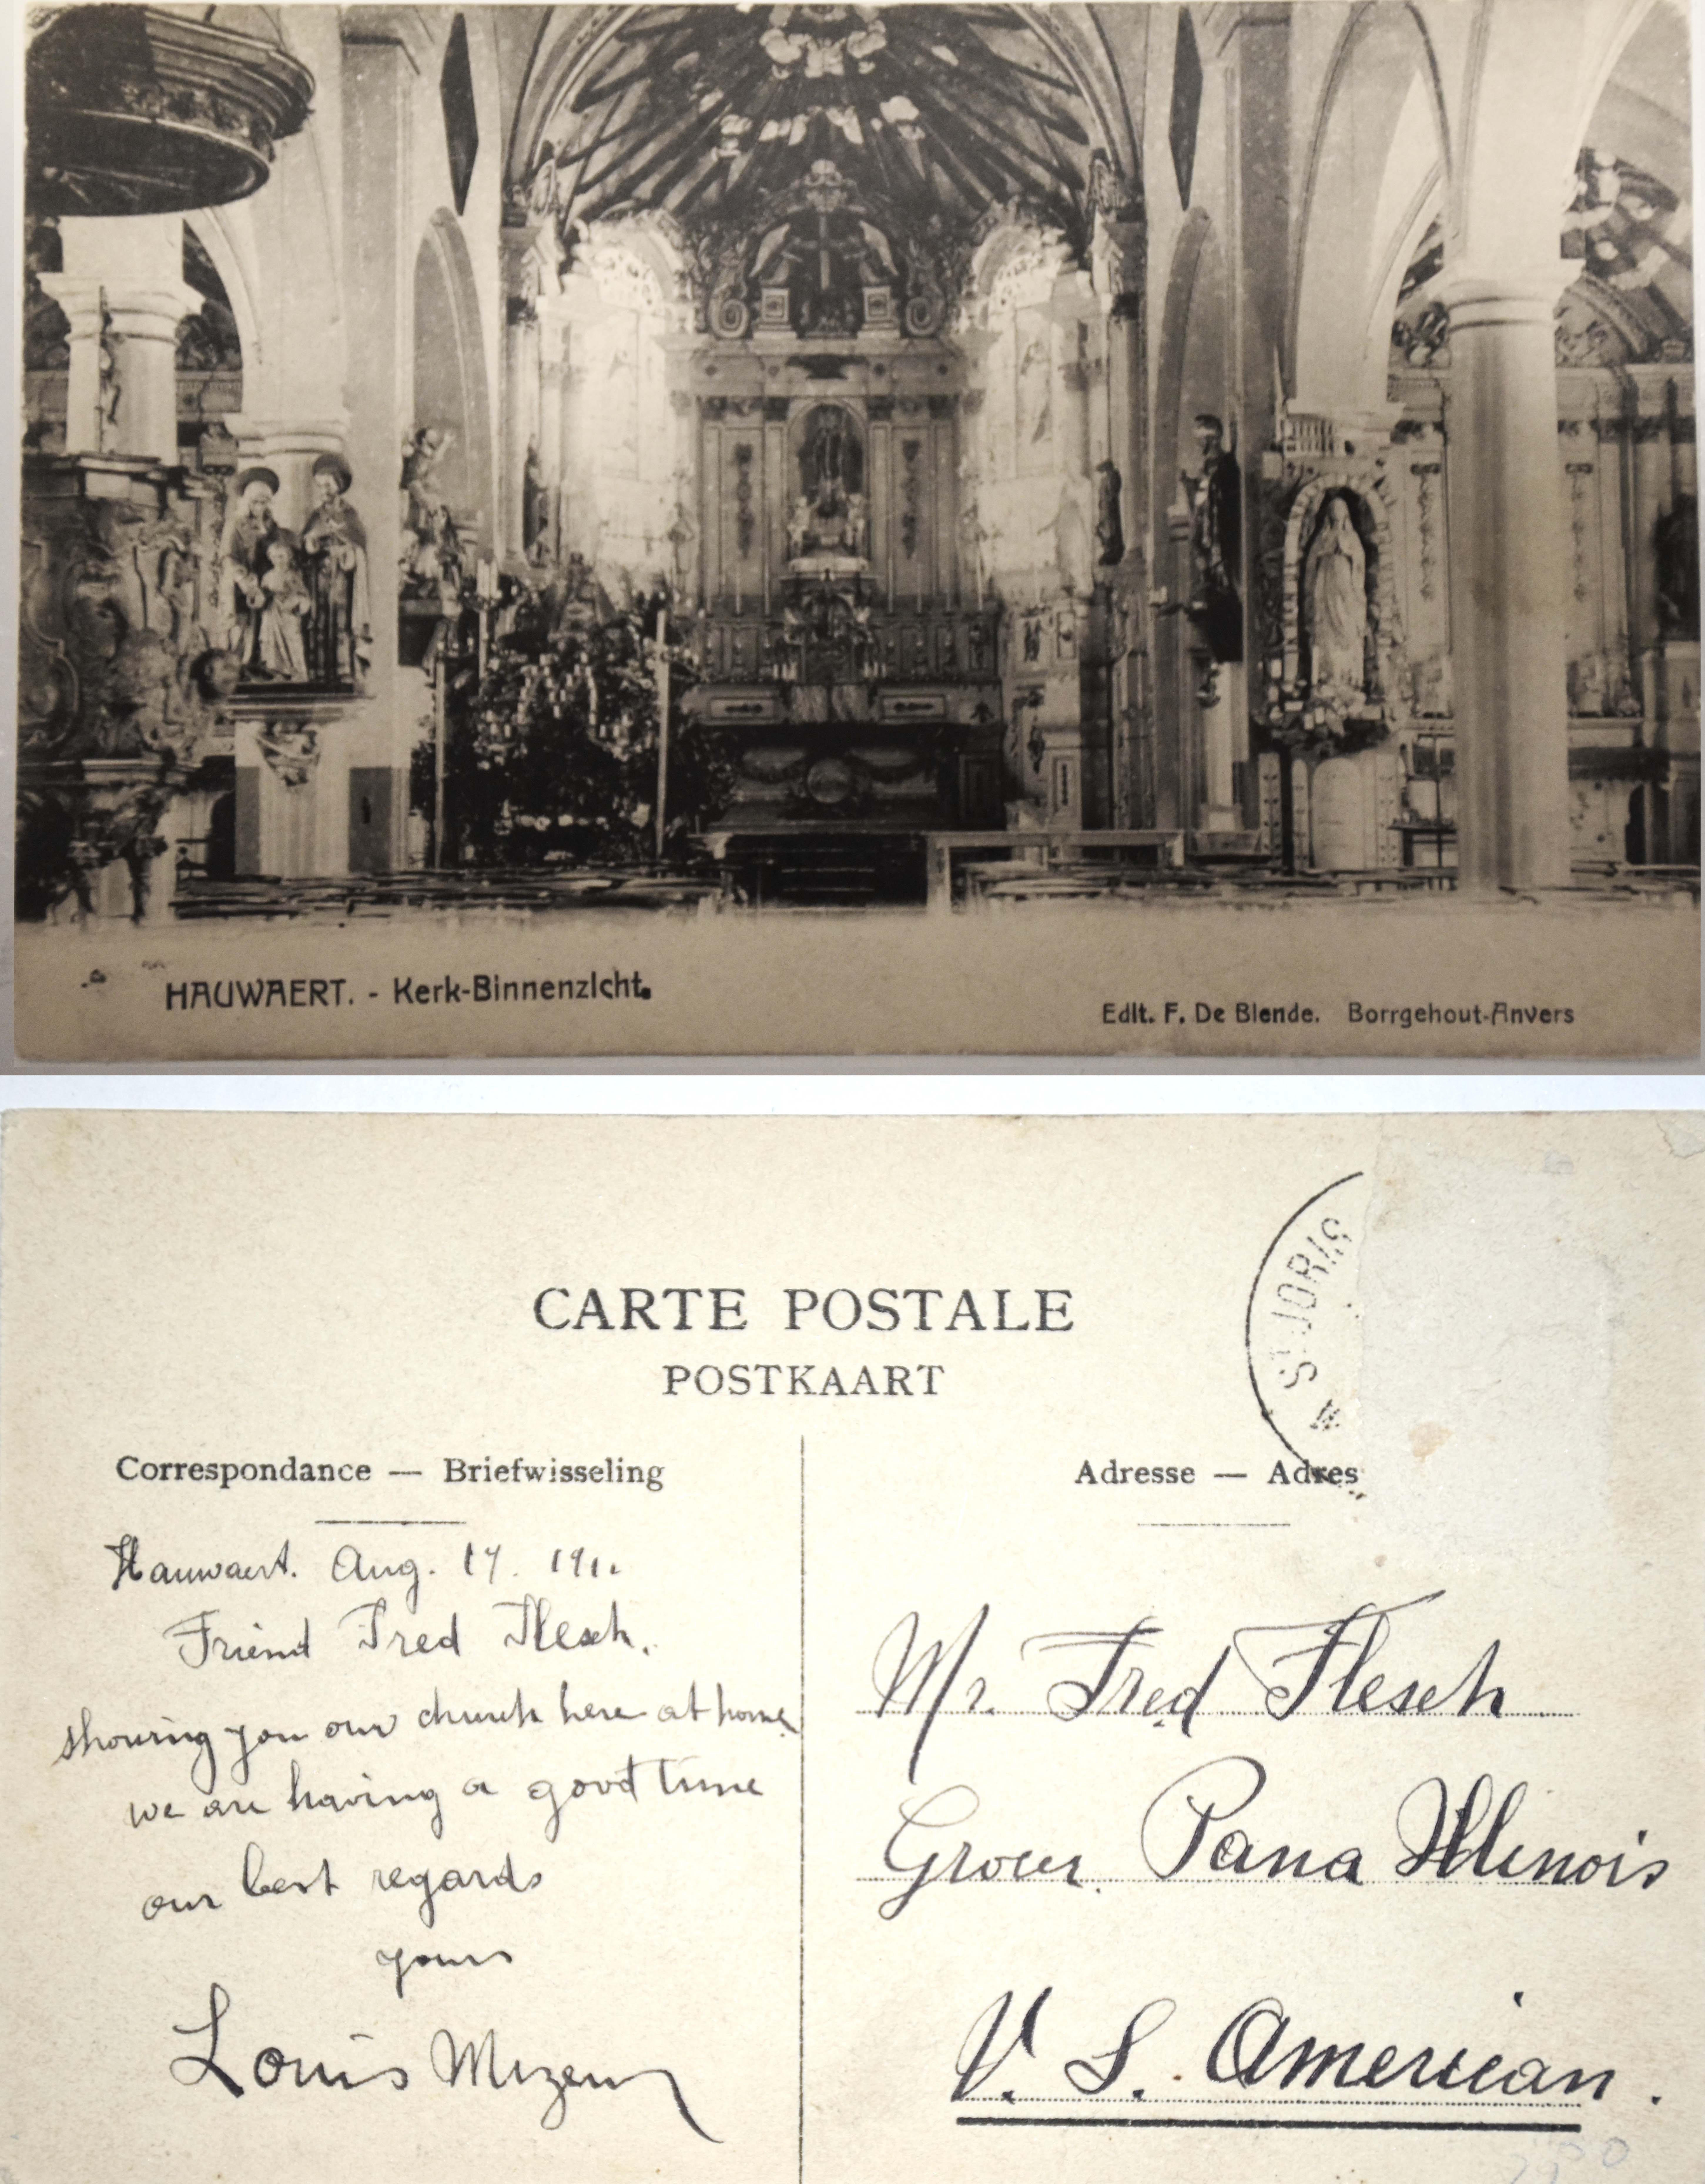 HAUWAERT. - Kerk-Binnenzicht.
Edit. F. De Blende. Borrgehout-Anvers
CARTE POSTALE
POSTKAART
Sᵗ JORIS W
Correspondance — Briefwisseling
Adresse — Adres
Hauwaert. Aug. 17. 1911
Friend Fred Flesch.
showing you our church here at home
we are having a good time
our best regards
yours
Louis
Mr. Fred Flesch
Grocer. Pana Illinois
V. S. American.